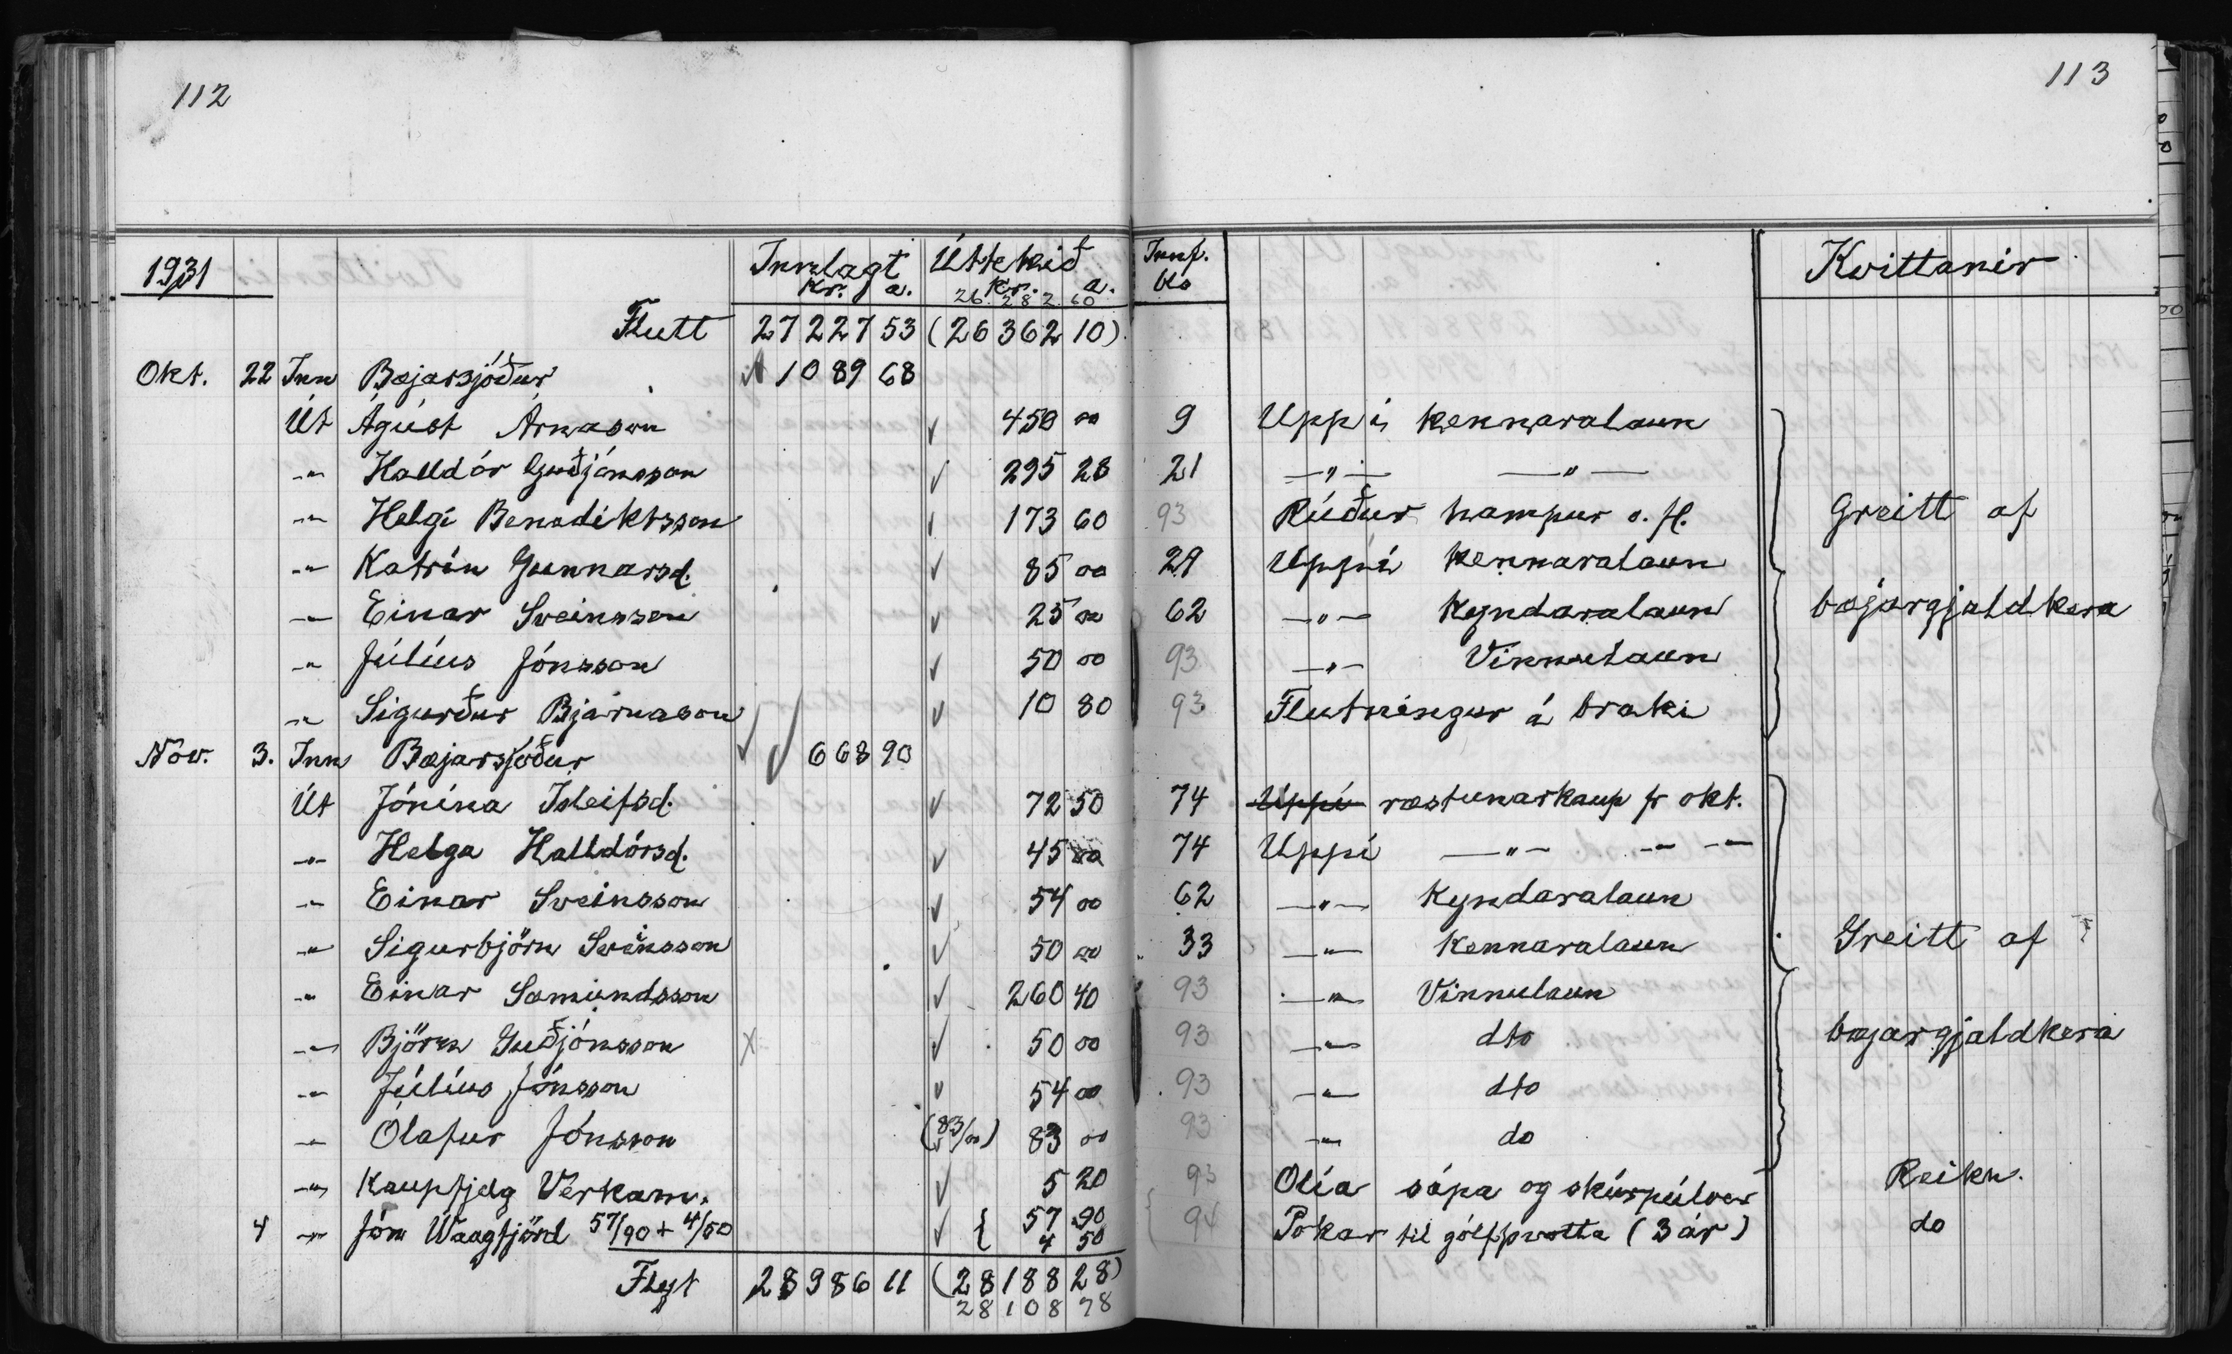 112
113
1931 Innlagt Úttekið Innf. Kvittanir
kr. a. kr. a. bls
26 282 60
Flutt 27227 53 (26362 10)
Okt. 22 Inn Bæjarsjóður 1089 68
Út Ágúst Árnason ✓ 450 00 9 Uppí kennaralaun
-"- Halldór Guðjónsson ✓ 295 28 21 -"- -"-
-"- Helgi Benediktsson ✓ 173 60 93 Rúður hampur o. fl. Greitt af
-"- Katrín Gunnarsd. ✓ 85 00 29 Uppí kennaralaun
-"- Einar Sveinsson ✓ 25 00 62 -"- Kyndaralaun bæjargjaldkera
-"- Júlíus Jónsson ✓ 50 00 93 -"- Vinnulaun
-"- Sigurður Bjarnason ✓ 10 80 93 Flutningur á braki
Nóv. 3. Inn Bæjarsjóður ✓ ✓ 668 90
Út Jónína Ísleifsd. ✓ 72 50 74 Uppí ræstunarkaup fr okt.
-"- Helga Halldórsd. ✓ 45 00 74 Uppí -"- -"- -"-
-"- Einar Sveinsson ✓ 54 00 62 -"- Kyndaralaun
-"- Sigurbjörn Sveinsson ✓ 50 00 33 -"- Kennaralaun Greitt af
-"- Einar Sæmundsson ✓ 260 40 93 -"- Vinnulaun
-"- Björn Guðjónsson x ✓ 50 00 93 -"- dto bæjargjaldkera
-"- Júlíus Jónsson ✓ 54 00 93 -"- dto
-"- Ólafur Jónsson (83/00) 83 00 93 -"- do
-"- Kaupfjelg Verkam. ✓ 5 20 93 Olía sápa og skúrpúlver Reikn.
4 -"- Jón Waagfjörd 57/90 + 4/50 ✓ { 57 90 94 Pokar til gólfþvotta (3 ár) do
4 50
Flyt 28986 11 (28188 28)
28108 78